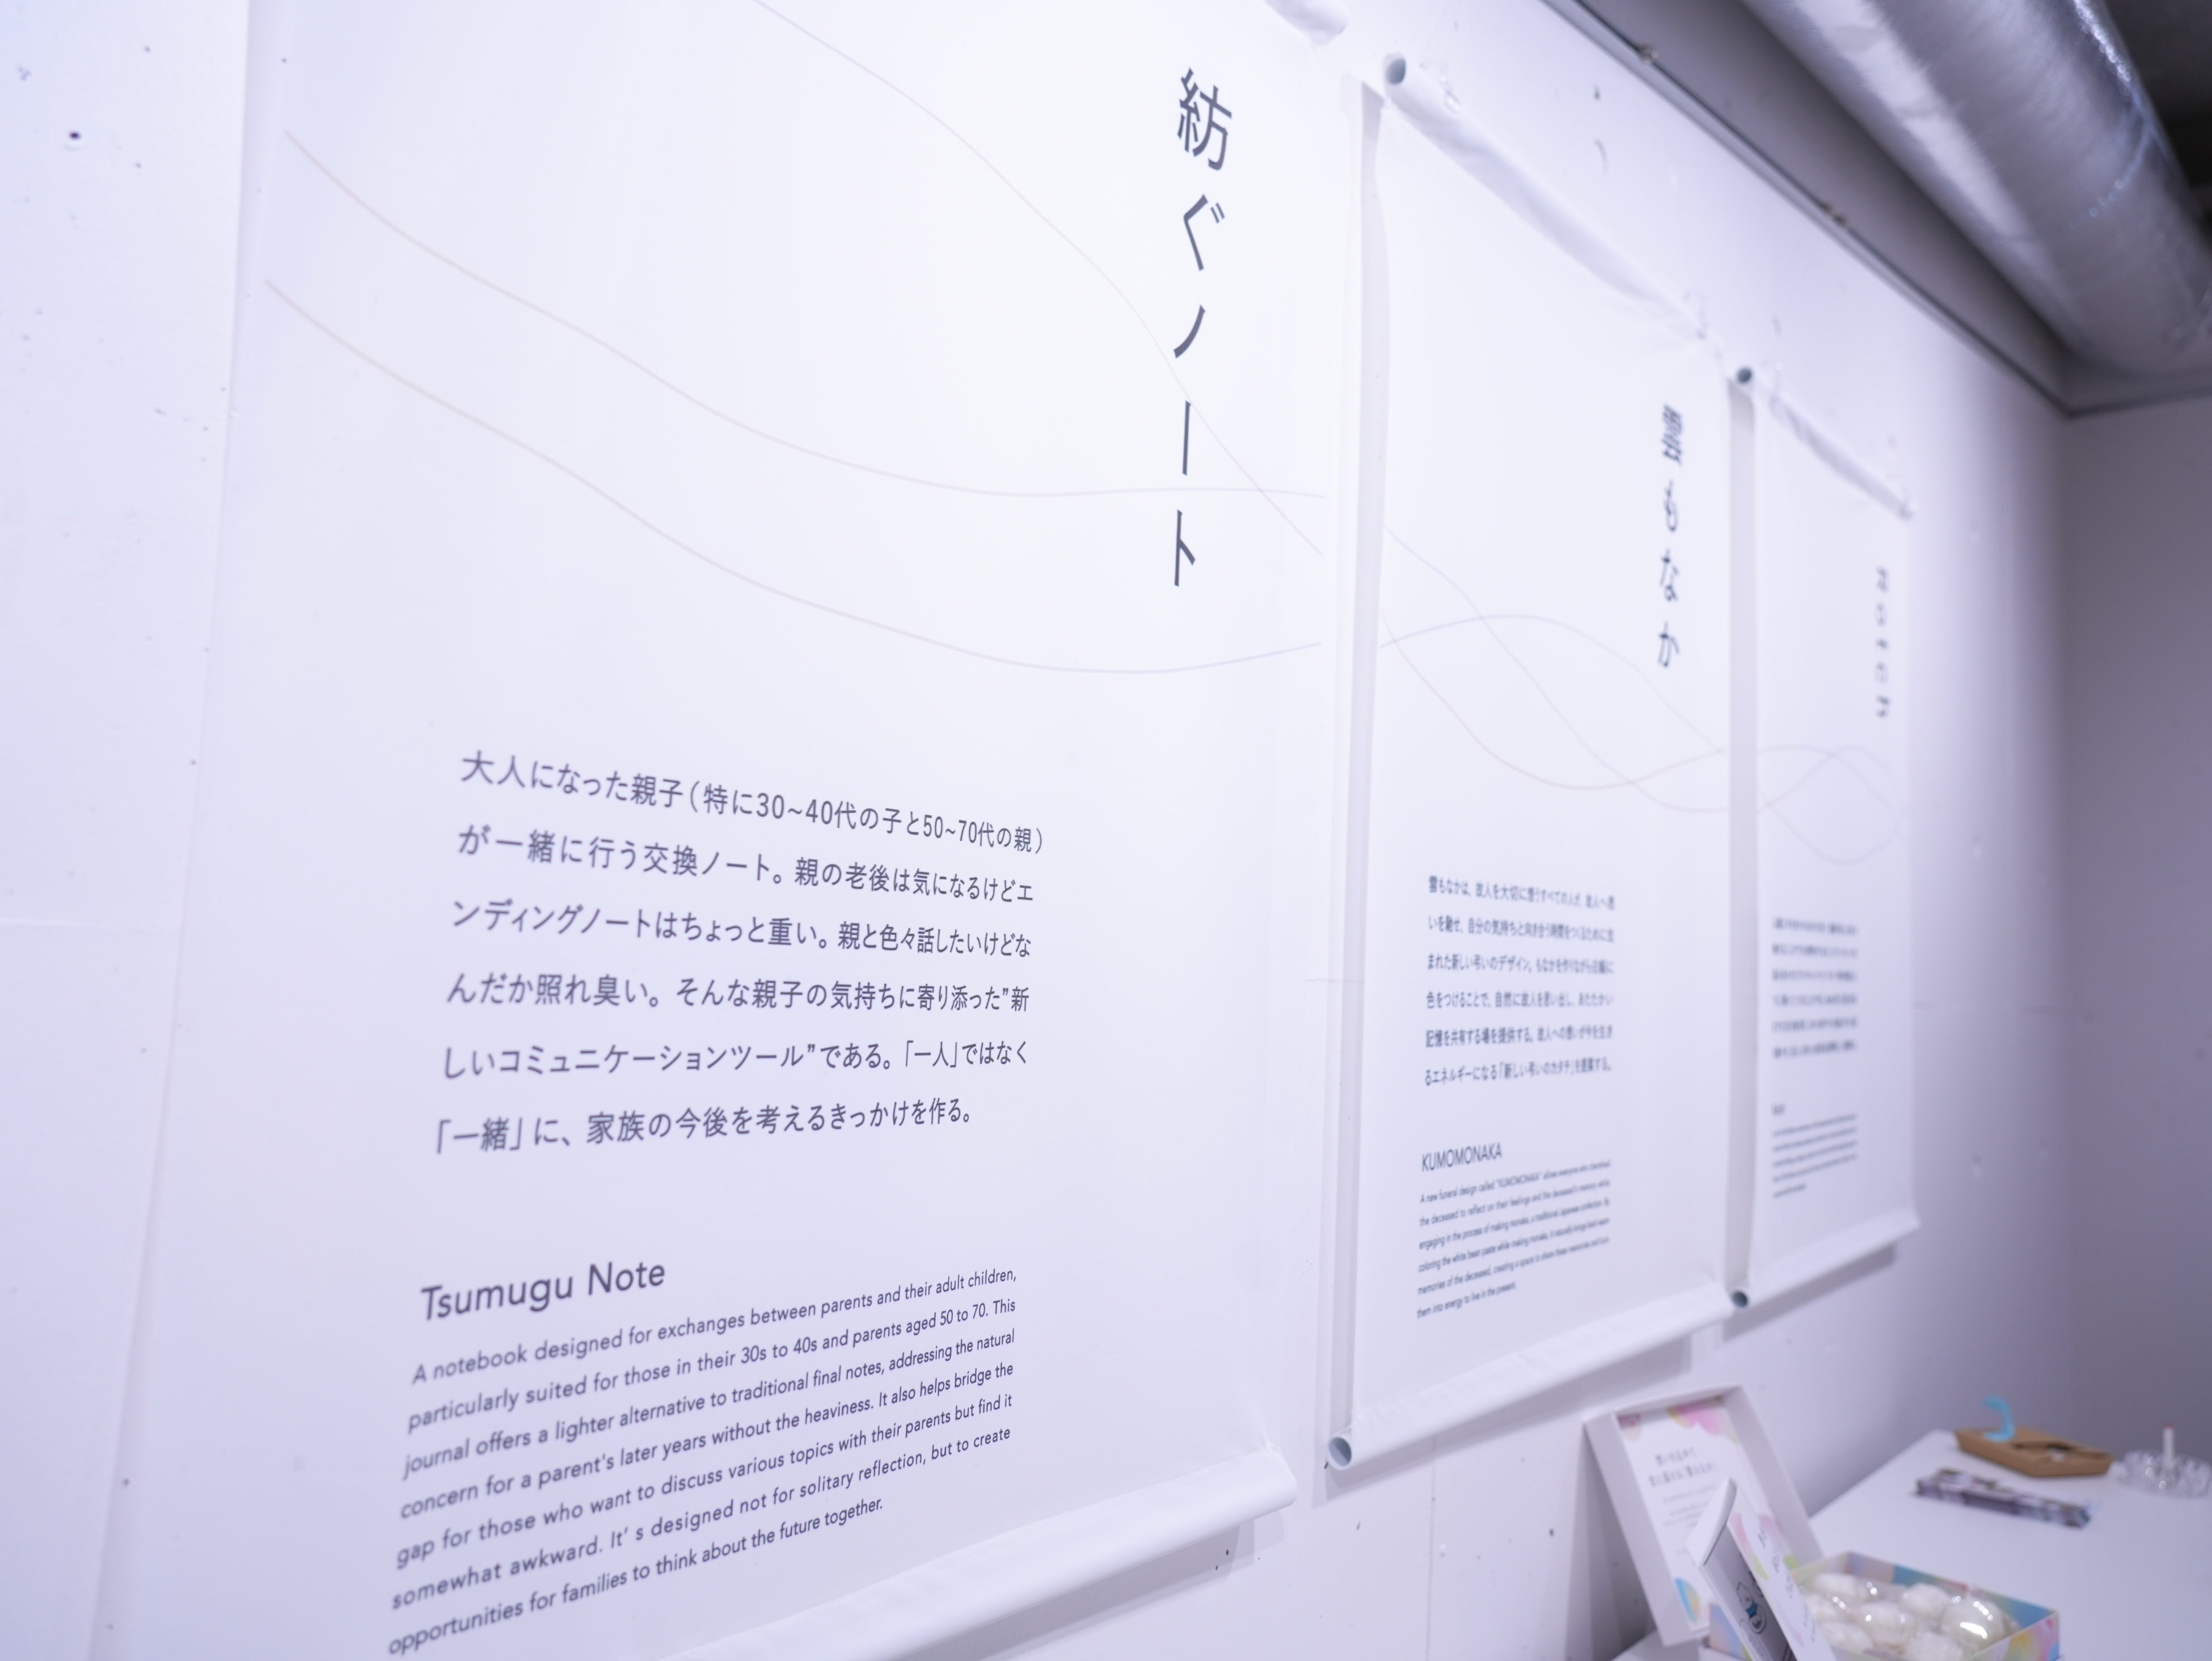 紡ぐノート
大人になった親子(特に30~40代の子と50~70代の親)
が一緒に行う交換ノート。親の老後は気になるけどエ
ンディングノートはちょっと重い。親と色々話したいけどな
んだか照れ臭い。そんな親子の気持ちに寄り添った”新
しいコミュニケーションツール”である。「一人」ではなく
「一緒」に、家族の今後を考えるきっかけを作る。
Tsumugu Note
A notebook designed for exchanges between parents and their adult children,
particularly suited for those in their 30s to 40s and parents aged 50 to 70. This
journal offers a lighter alternative to traditional final notes, addressing the natural
concern for a parent's later years without the heaviness. It also helps bridge the
gap for those who want to discuss various topics with their parents but find it
somewhat awkward. It’ s designed not for solitary reflection, but to create
opportunities for families to think about the future together.
雲もなか
雲もなかは、故人を大切に想うすべての人が、故人へ思
いを馳せ、自分の気持ちと向き合う時間をつくるために生
まれた新しい弔いのデザイン。もなかを作りながら白餡に
色をつけることで、自然に故人を思い出し、あたたかい
記憶を共有する場を提供する。故人への想いが今を生き
るエネルギーになる「新しい弔いのカタチ」を提案する。
KUMOMONAKA
A new funeral design called "KUMOMONAKA" allows everyone who cherished
the deceased to reflect on their feelings and the deceased's memory while
engaging in the process of making monaka, a traditional Japanese confection. By
coloring the white bean paste while making monaka, it naturally brings back warm
memories of the deceased, creating a space to share these memories and turn
them into energy to live in the present.